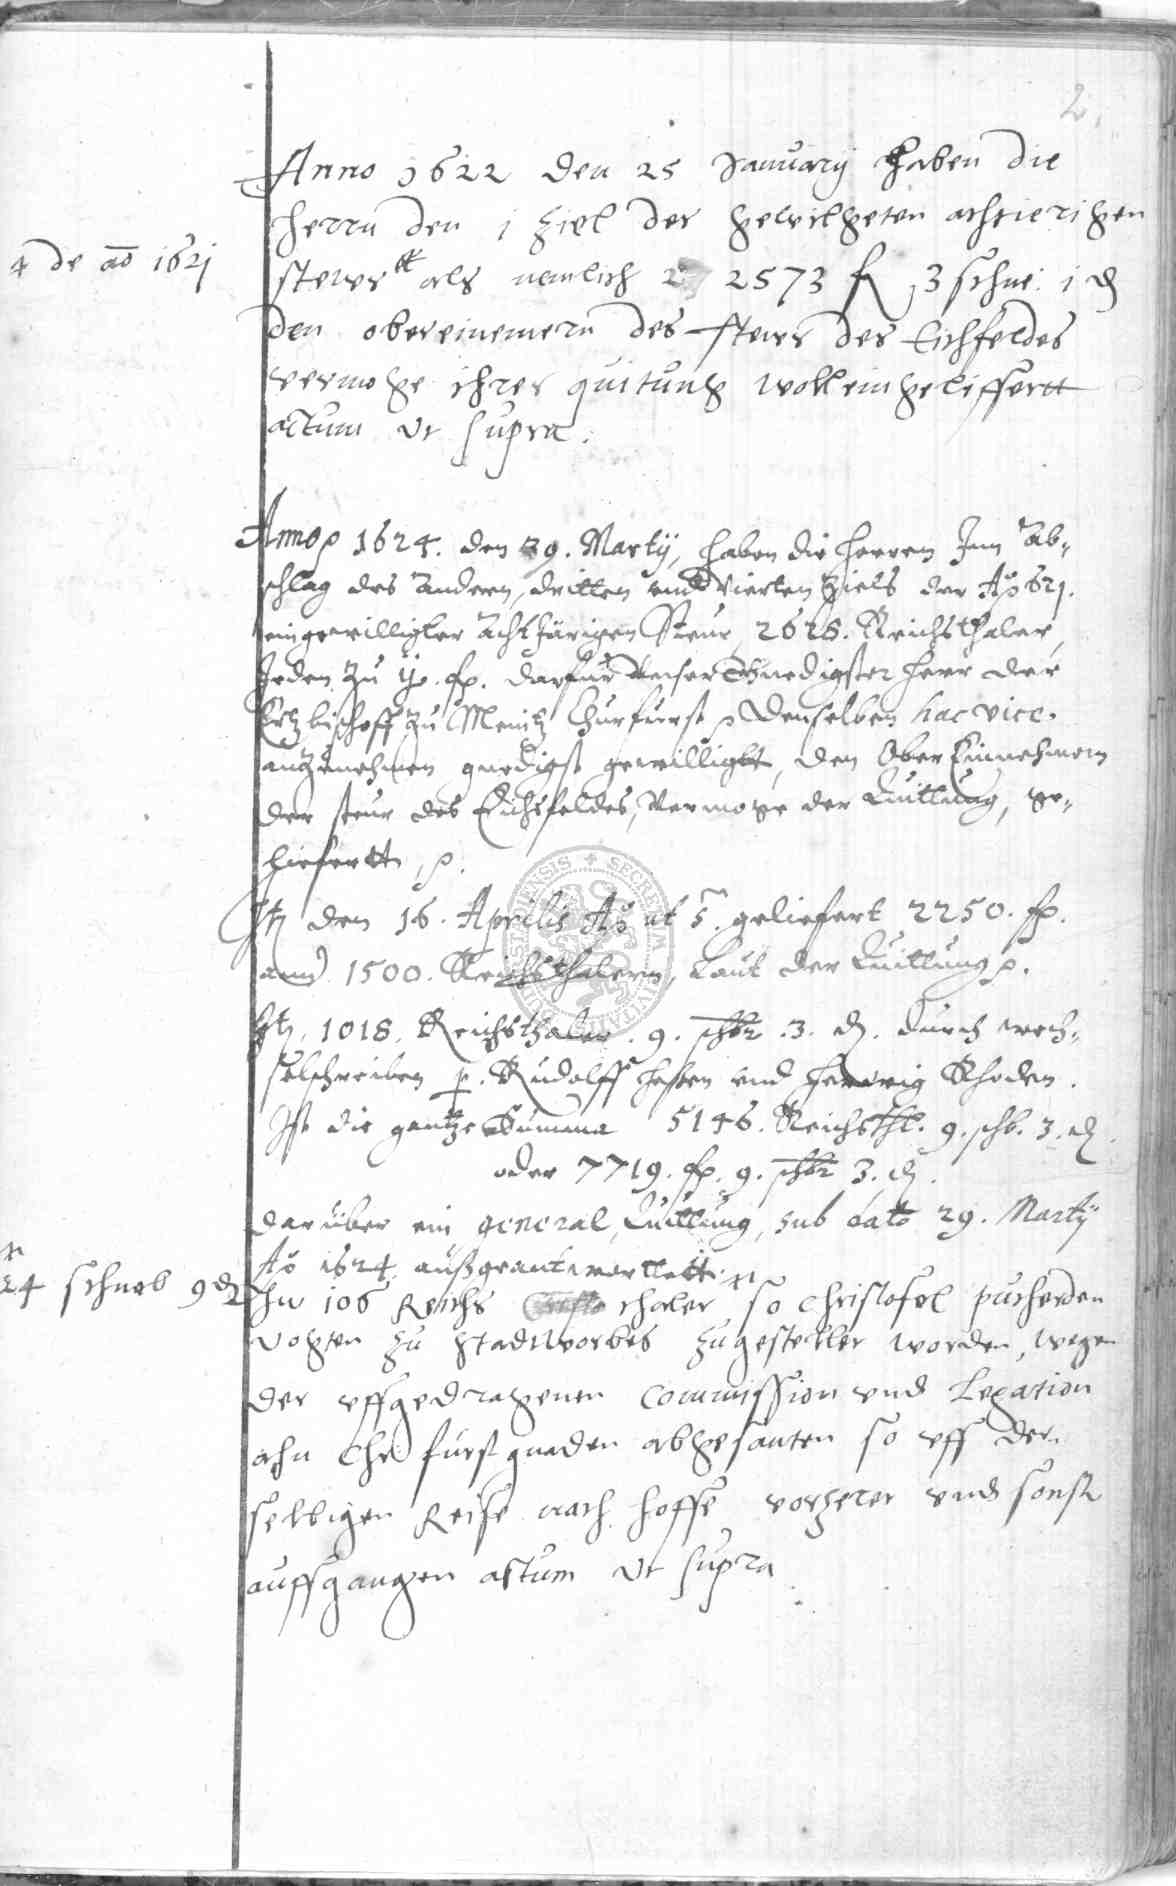 2.
Anno 1622 den 25 January haben die
herrn den 1 ziel der gewilgeten achtierigen
# de ao 1621
steuer # als nemlich 2573 fl 3 schne: 1 d
den obereinemern des steuer des Eichfeldes
vermoge ihrer quitung woll eingeliffertt
actum ut supra.
Anno p 1624. den 29. Martij, haben die herren Inn Ab-
schlag des Anderen, dritten vnd Vierten Ziels der Ao 621.
eingewilligter Acht Järigen Steur, 2628. Reichsthaler,
Jeden zu fl. darfur Vnser Gnedigster herr der
Ertzbischoff zu Meintz Churfurst p denselben hac vice.
antzunehmen gnedigst gewilligt, den Ober Einnehmern
der steur des Eichsfeldes, Vermoge der Quittung, ge-
liefertt, p.
Jtz den 16. Aprilis Ao ut s. geliefert 2250. fl.
ann 1500. Reichsthalern, Laut der Quittung p.
Jtz. 1018. Reichsthaler. 9. schbr. 3. d. durch wech-
selschreiben p. Rudolff hesen vnd herwig Rhoden.
Ist die gantze Summa 5146. Reichsthl. 9. schb. 3. d.
oder 7719. fl. 9. schbr 3. d.
darüber ein general Quittung, sub dato 29. Martij
Ao 1624 außgeantwortett.
24 schneb 9 d
Jtz 106 Reichs thaler so Christofel pucherden
vogten zu stadtworbes zugesteller worden, wegen
der uffgedragenen Commission vnd Legation
ahn Chr furst gnaden abgesanten so uff der
selbigen Reise nach hoffe vorzerer vnd sonst
auffgangen actum ut supra